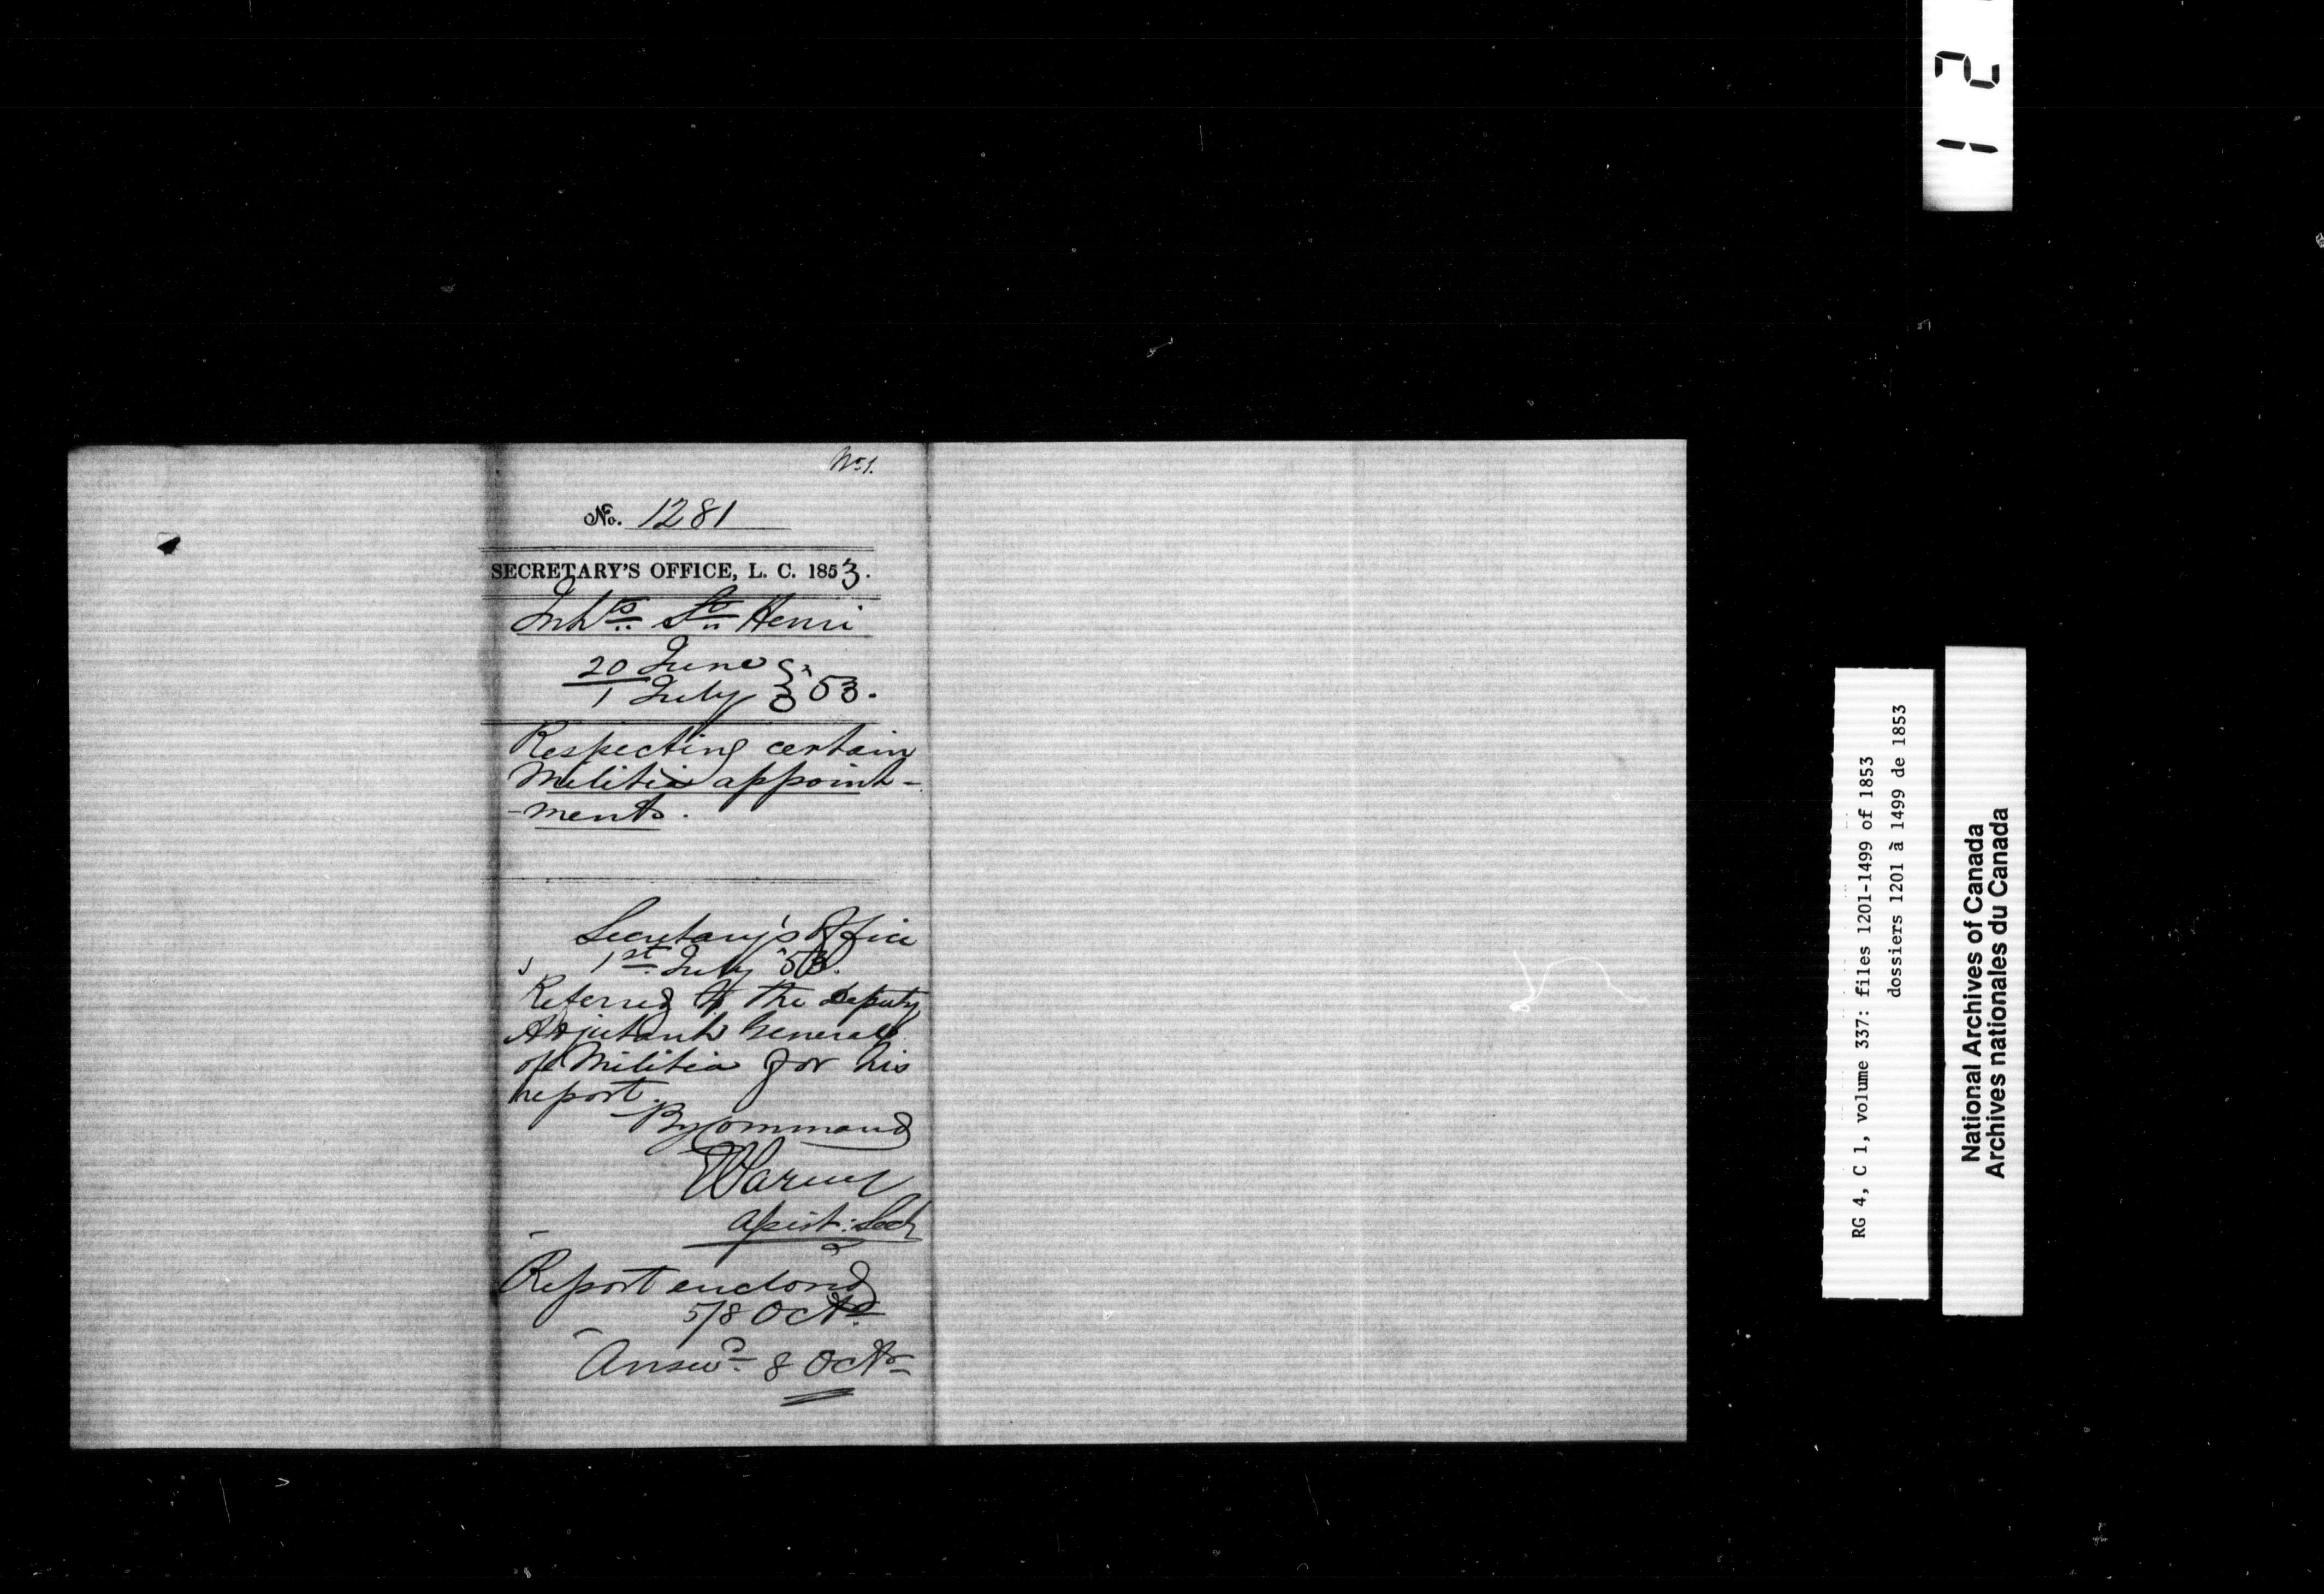 No. 1.
No. 1281
SECRETARY'S OFFICE, L. C. 1853.
Inhts St Henri
20 June } 53.
1 July
Respecting certain
Militia appoint-
-ments.
Secretary's Office
1st July 53.
Referred to the Deputy
Adjutant General
of Militia for his
report.
By Command
Assist: Secy
Report enclosed
5/8 Octr
Answd 8 Octr
12
RG 4, C 1, volume 337: files 1201-1499 of 1853
dossiers 1201 à 1499 de 1853
National Archives of Canada
Archives nationales du Canada